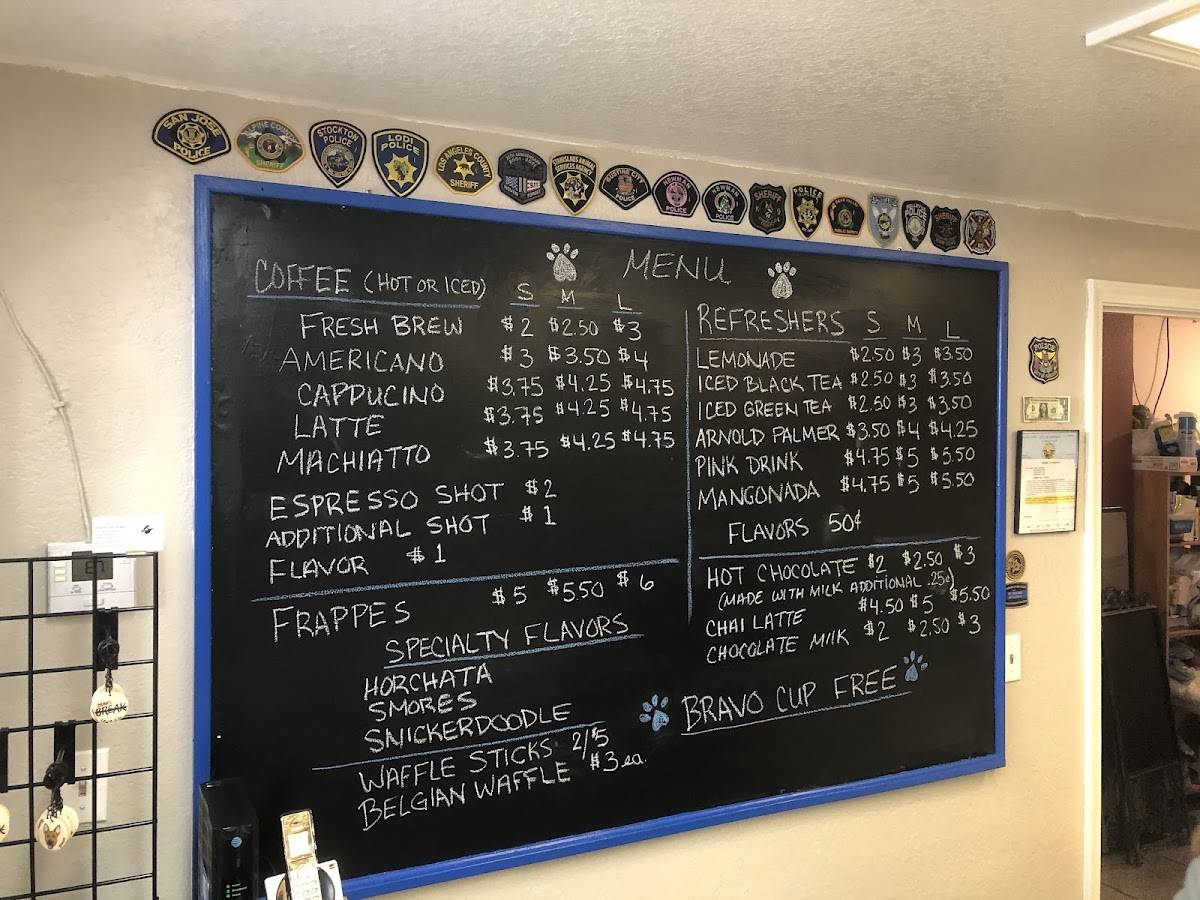 SAN JOSE
POLICE
ALPINE COUNTY
SHERIFF
STOCKTON
POLICE
LODI
POLICE
LOS ANGELES COUNTY
SHERIFF
STANISLAUS ANIMAL
SERVICES AGENCY
NEWMAN
POLICE
NEWMAN
POLICE
SHERIFF
POLICE
POLICE
SHERIFF
POLICE
MENU
COFFEE (HOT OR ICED) S M L
FRESH BREW $2 $2.50 $3
AMERICANO $3 $3.50 $4
CAPPUCINO $3.75 $4.25 $4.75
LATTE $3.75 $4.25 $4.75
MACHIATTO $3.75 $4.25 $4.75
ESPRESSO SHOT $2
ADDITIONAL SHOT $1
FLAVOR $1
FRAPPES $5 $5.50 $6
SPECIALTY FLAVORS
HORCHATA
SMORES
SNICKERDOODLE
WAFFLE STICKS 2/$5
BELGIAN WAFFLE $3 ea.
REFRESHERS S M L
LEMONADE $2.50 $3 $3.50
ICED BLACK TEA $2.50 $3 $3.50
ICED GREEN TEA $2.50 $3 $3.50
ARNOLD PALMER $3.50 $4 $4.25
PINK DRINK $4.75 $5 $5.50
MANGONADA $4.75 $5 $5.50
FLAVORS 50¢
HOT CHOCOLATE $2 $2.50 $3
(MADE WITH MILK ADDITIONAL .25¢)
CHAI LATTE $4.50 $5 $5.50
CHOCOLATE MILK $2 $2.50 $3
BRAVO CUP FREE
BREAK